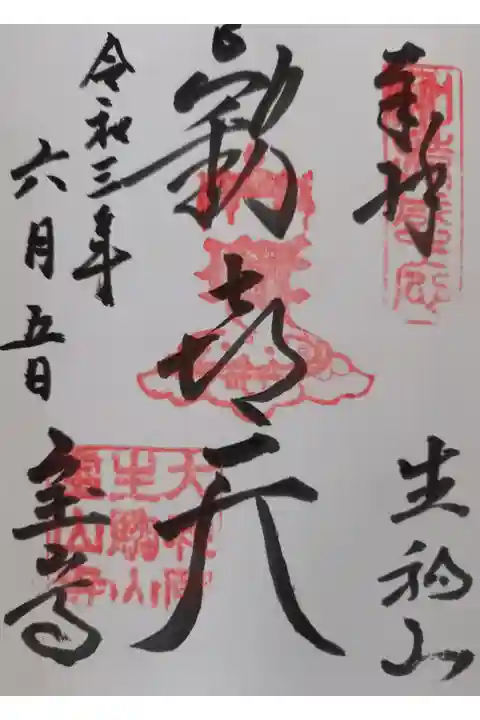 奉拝
生駒山
歡喜天
令和三年
六月五日
宝山寺
大和國
生駒山
寳山寺